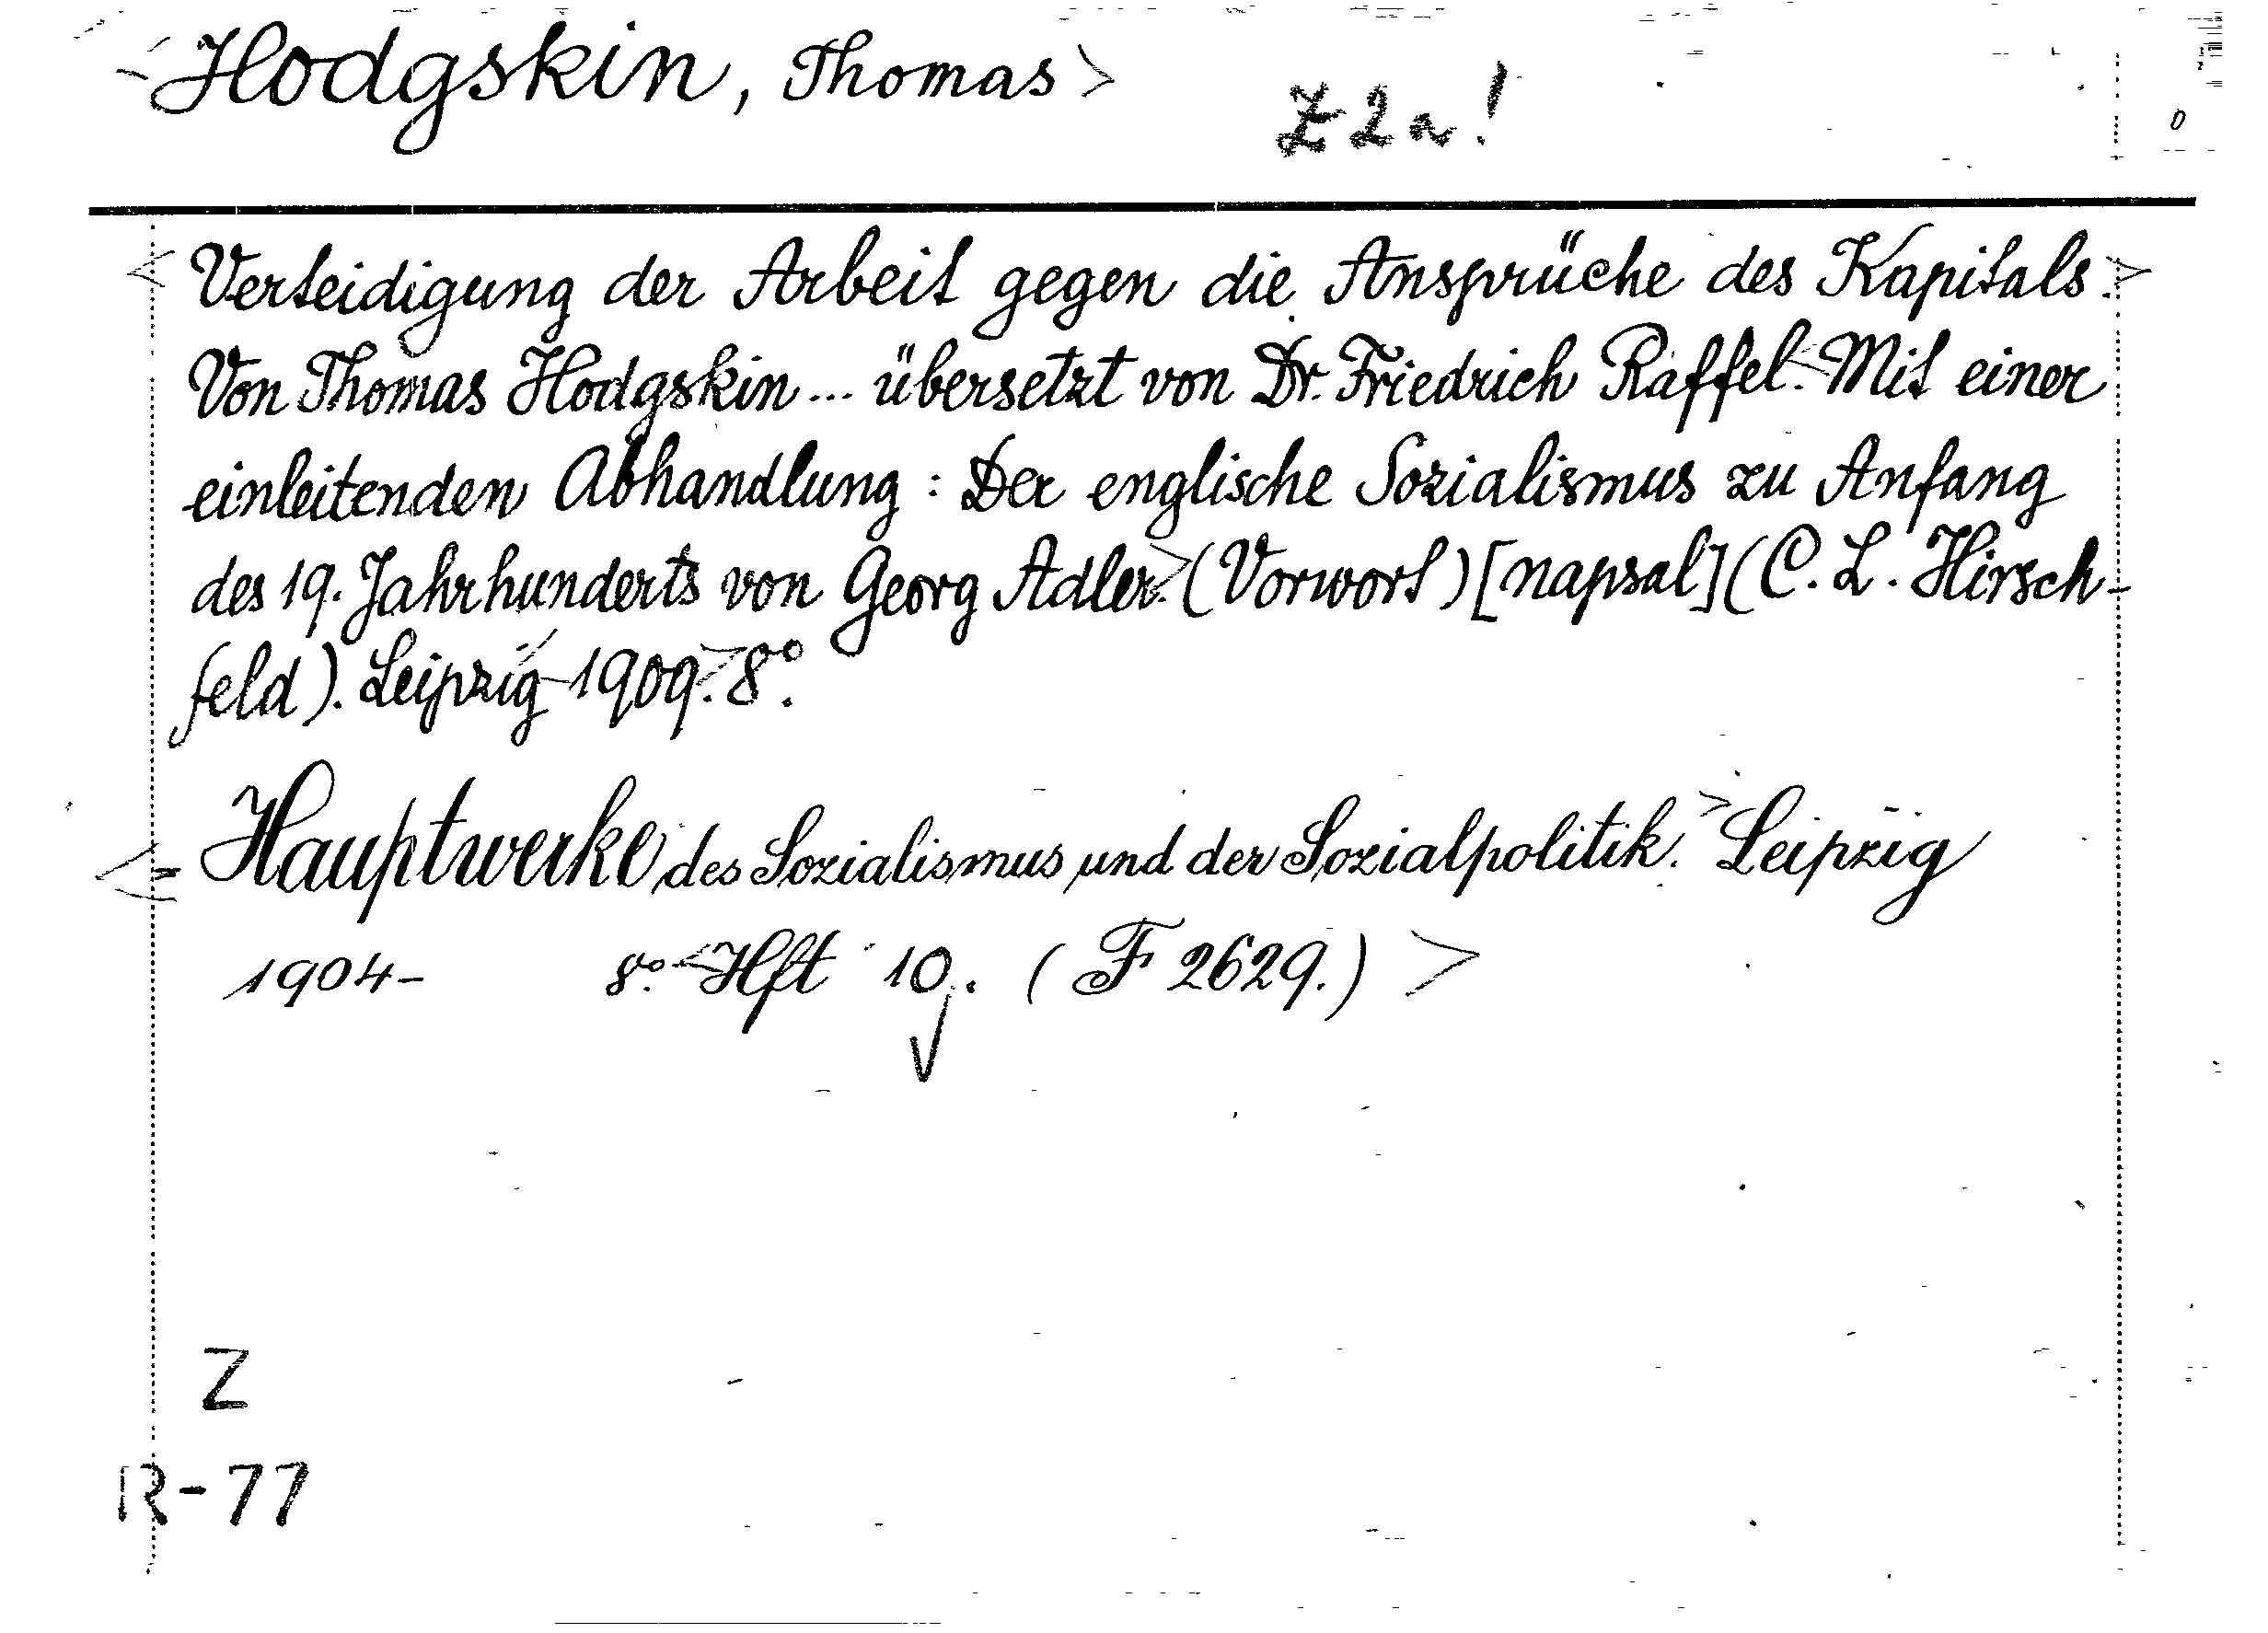 <Hodgskin, Thomas>
Z 2 a!
<Verteidigung der Arbeit gegen die Ansprüche des Kapitals.>
Von Thomas Hodgskin... übersetzt von Dr. Friedrich Raffel. <Mit einer
einleitenden Abhandlung: Der englische Sozialismus zu Anfang
des 19. Jahrhunderts von Georg Adler.> (Vorwort) [napsal] (C. L. Hirsch-
feld). Leipzig 1909. 8°.
<= Hauptwerke des Sozialismus und der Sozialpolitik.> Leipzig
1904- 8°. <Hft 10. (F 2629.)>
Z
R-77